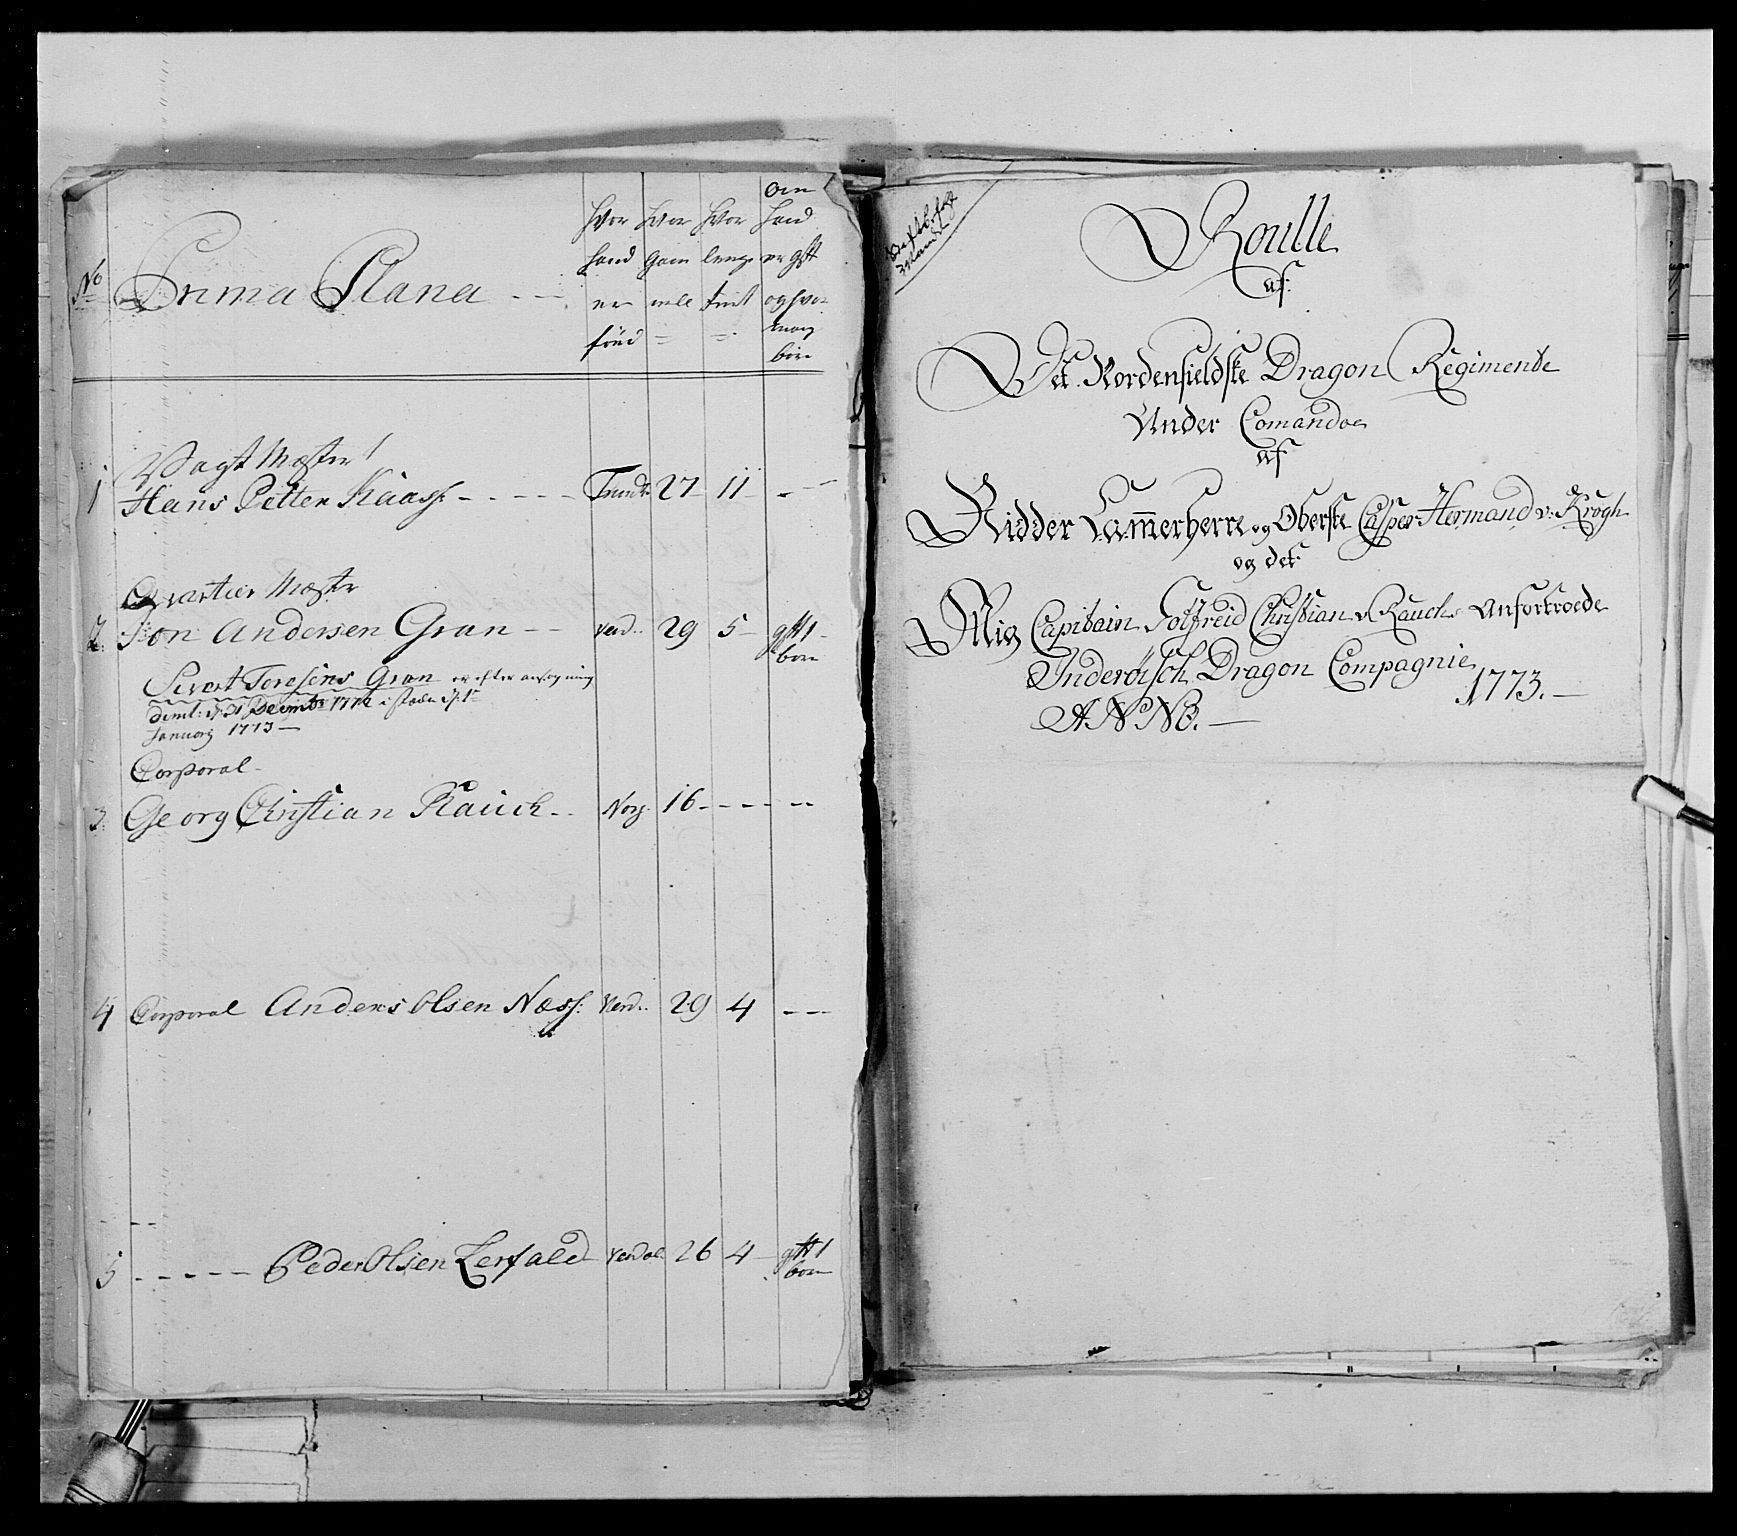 No
Prima Plana
hvor hand er föed
hvor gam mell
hvor lenge tient
om hand er gift og hvor mang börn
Vagt Mester
1 Hans Petter Kaass. Trondh. 27 11
Qvarteer Mester
2. Jon Andersen Gran verd. 29 5 gift 1 börn
Sivert Toresens Gran er efter ansøgning
dimit: d. 31 Decembr 1772 i stæden d: 1te
January 1773
Corporal
3. Georg Christian Rauch Norg. 16
4 Corporal Anders Olsen Næss: Verd. 29 4
5 Peder Olsen Lerfald verdal 26 4 gift 1 börn
Roulle
af
Det Nordenfieldske Dragon Regimente
Under Comandoe
af
Ridder Cammerherre og Oberste Casper Hermand v: Krogh
og det
Mig Capitain Gotfreid Christian v Rauch Anfortroede
Inderöisch Dragon Compagnie
ANNO. 1773.